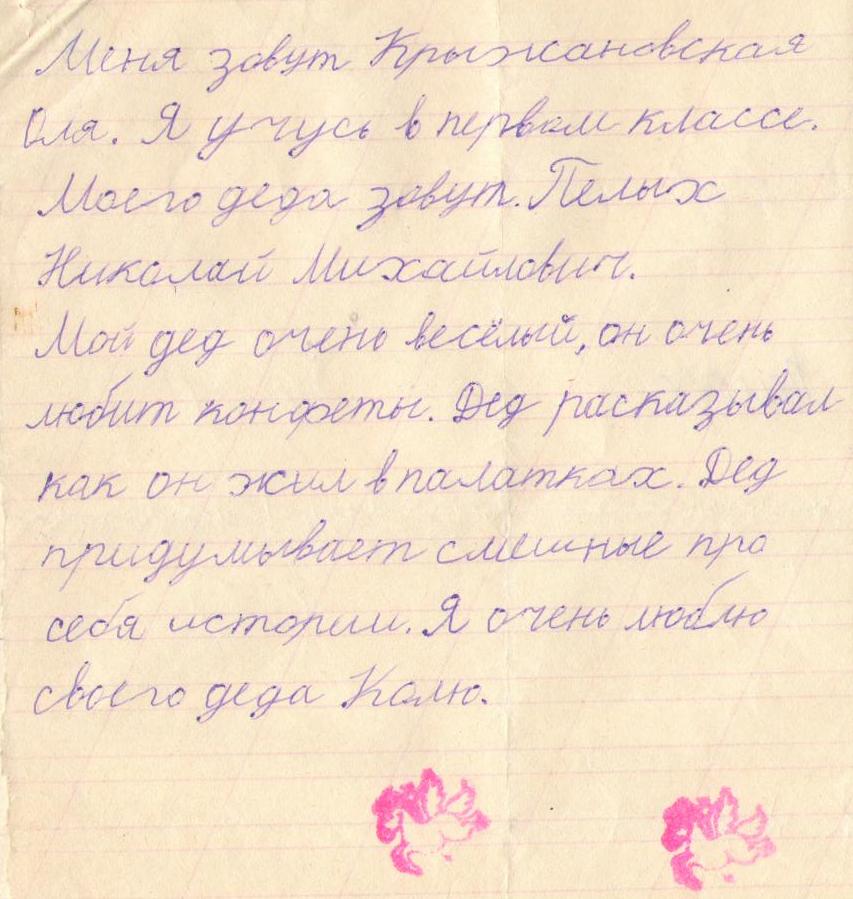 Меня зовут Крыжановская
Оля. Я учусь в первом классе.
Моего деда зовут. Пелых
Николай Михайлович.
Мой дед очень весёлый, он очень
любит конфеты. Дед расказывал
как он жил в палатках. Дед
придумывает смешные про
себя истории. Я очень люблю
своего деда Колю.